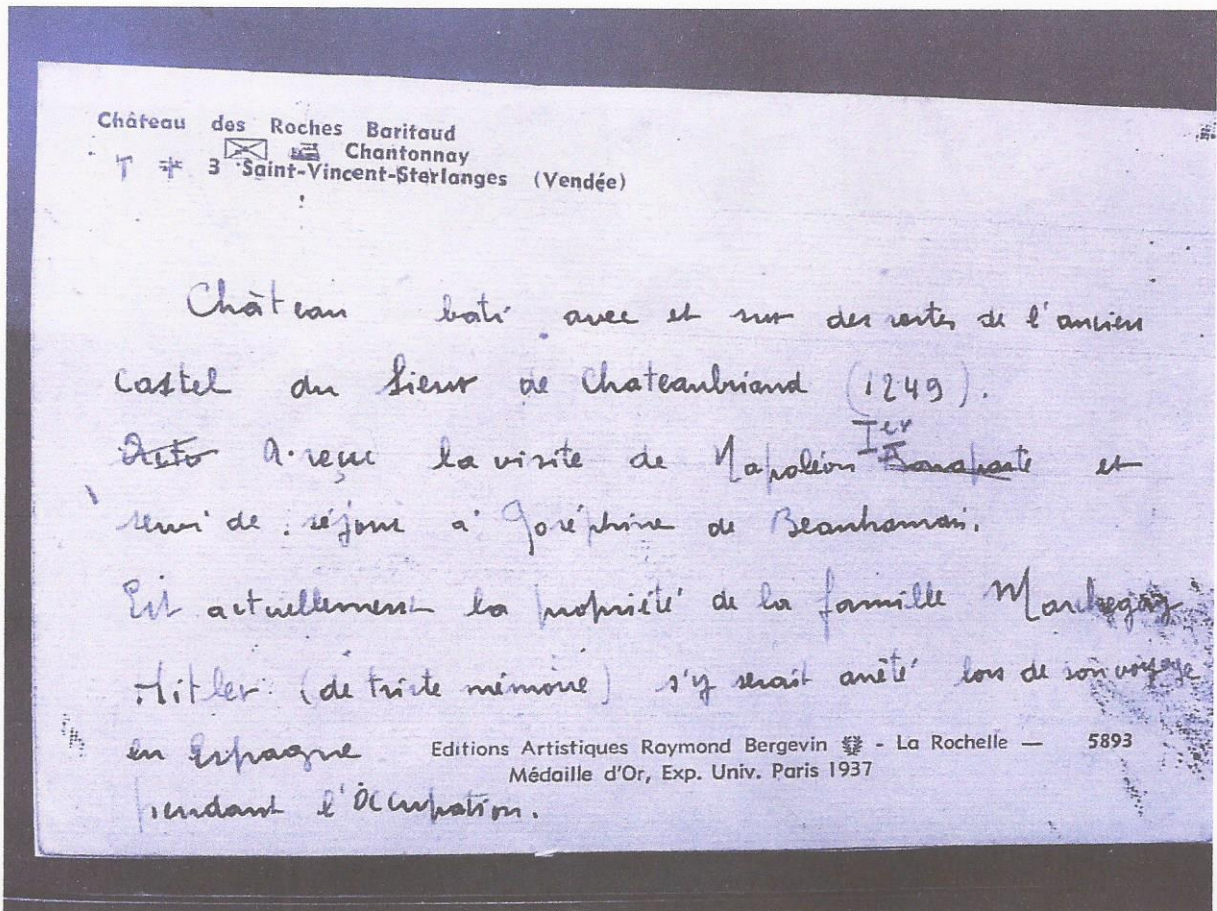 Château des Roches Baritaud
Chantonnay
3 Saint-Vincent-Sterlanges (Vendée)
Château bati avec et sur des restes de l'ancien
Castel du Sieur de Chateaubriand (1249).
A reçu la visite de Napoléon Ier Bonaparte et
servi de séjour à Joséphine de Beauharnais.
Est actuellement la propriété de la famille Marchegay
Hitler (de triste mémoire) s'y serait arrêté lors de son voyage
en Espagne
Editions Artistiques Raymond Bergevin - La Rochelle — 5893
Médaille d'Or, Exp. Univ. Paris 1937
pendant l'Occupation.